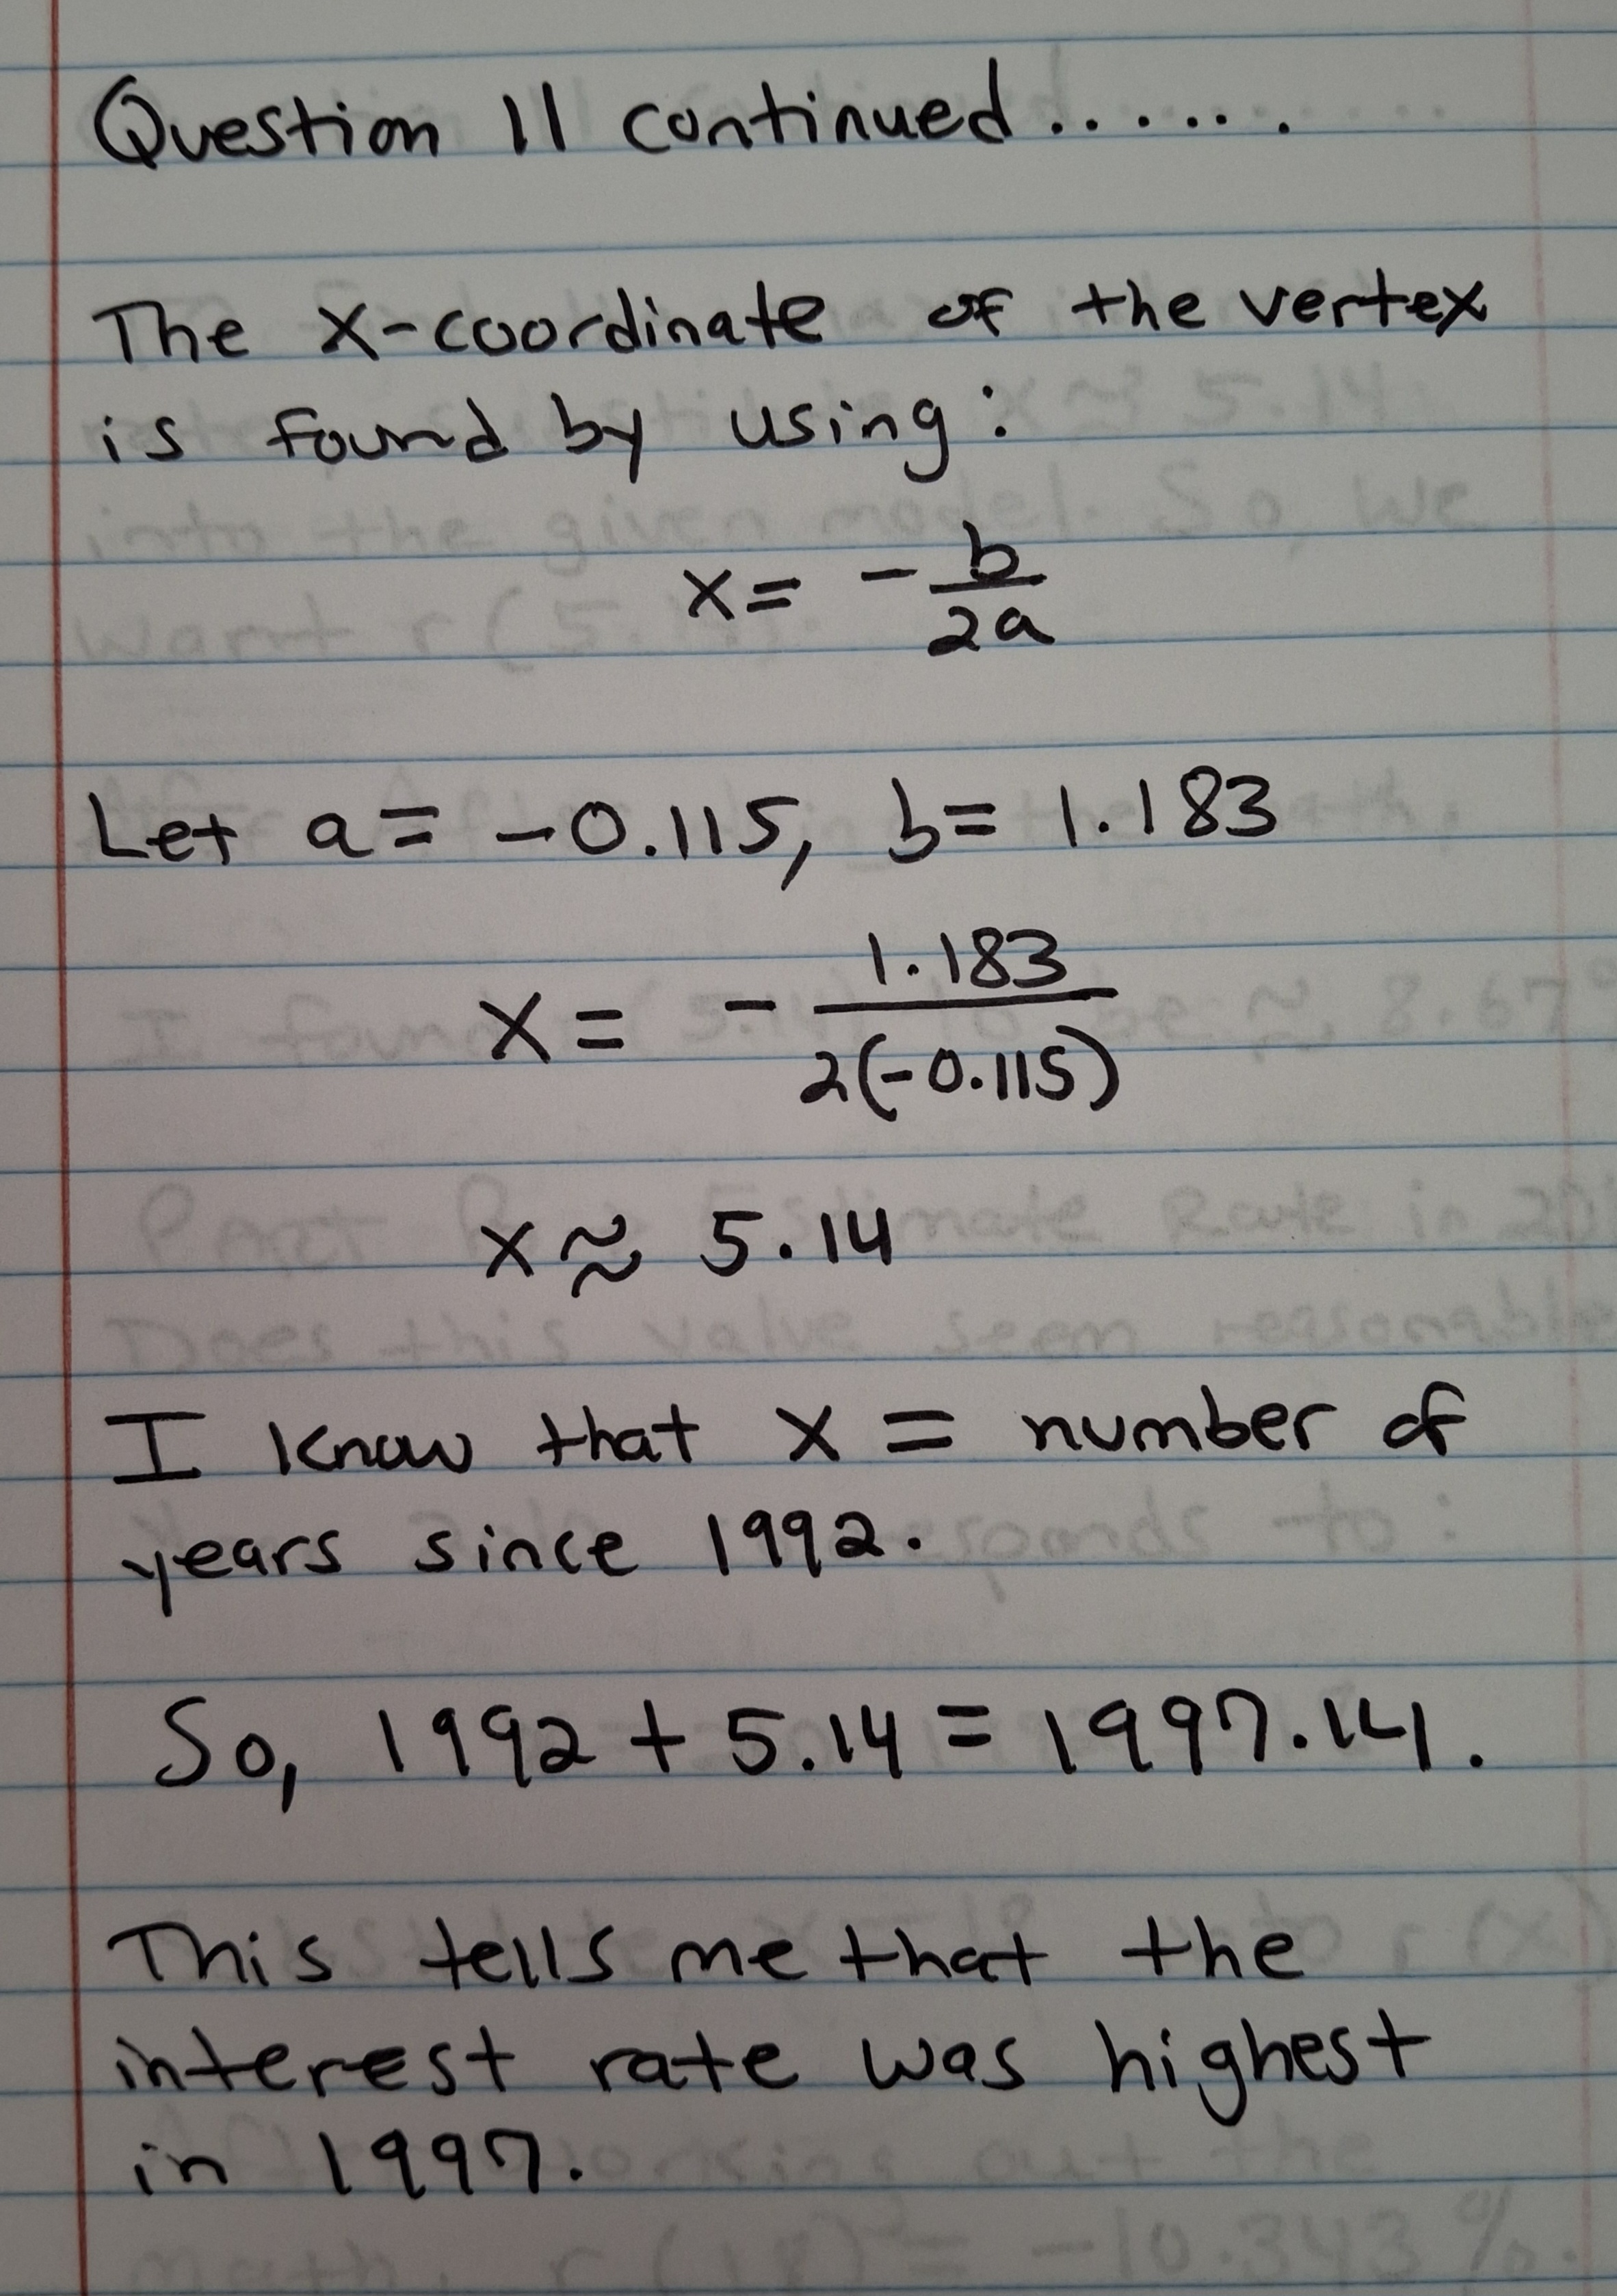 Question 11 continued.......
The x-coordinate of the vertex
is found by using:
x = - b/2a
Let a = -0.115, b = 1.183
x = - 1.183/2(-0.115)
x ≈ 5.14
I know that x = number of
years since 1992.
So, 1992 + 5.14 = 1997.14.
This tells me that the
interest rate was highest
in 1997.